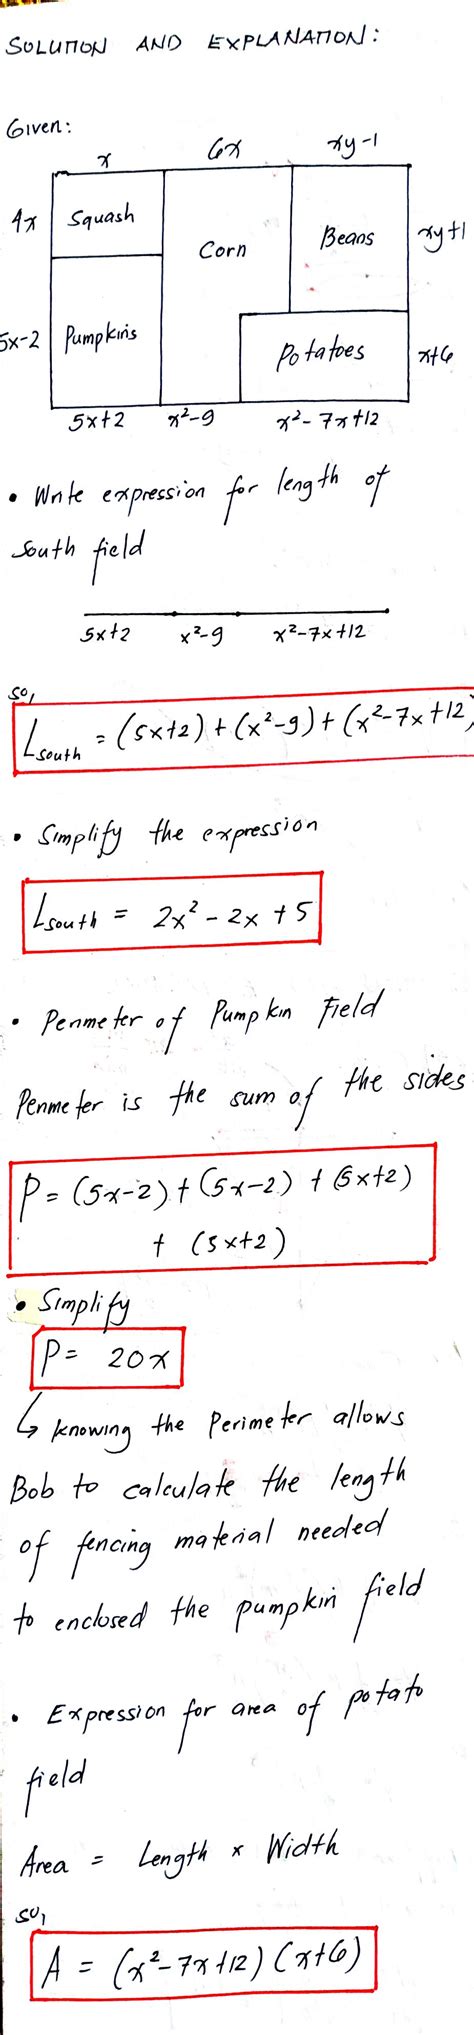 SOLUTION AND EXPLANATION:
Given:
x 6x xy-1
4x Squash Corn Beans xy+1
5x-2 Pumpkins Potatoes x+6
5x+2 x²-9 x²-7x+12
• Write expression for length of
South field
5x+2 x²-9 x²-7x+12
so,
Lsouth = (5x+2) + (x²-9) + (x²-7x+12)
• Simplify the expression
Lsouth = 2x² - 2x + 5
• Perimeter of Pumpkin Field
Perimeter is the sum of the sides
P = (5x-2) + (5x-2) + (5x+2)
+ (5x+2)
• Simplify
P = 20x
↳ knowing the perimeter allows
Bob to calculate the length
of fencing material needed
to enclosed the pumpkin field
• Expression for area of potato
field
Area = Length x Width
so,
A = (x²-7x+12)(x+6)